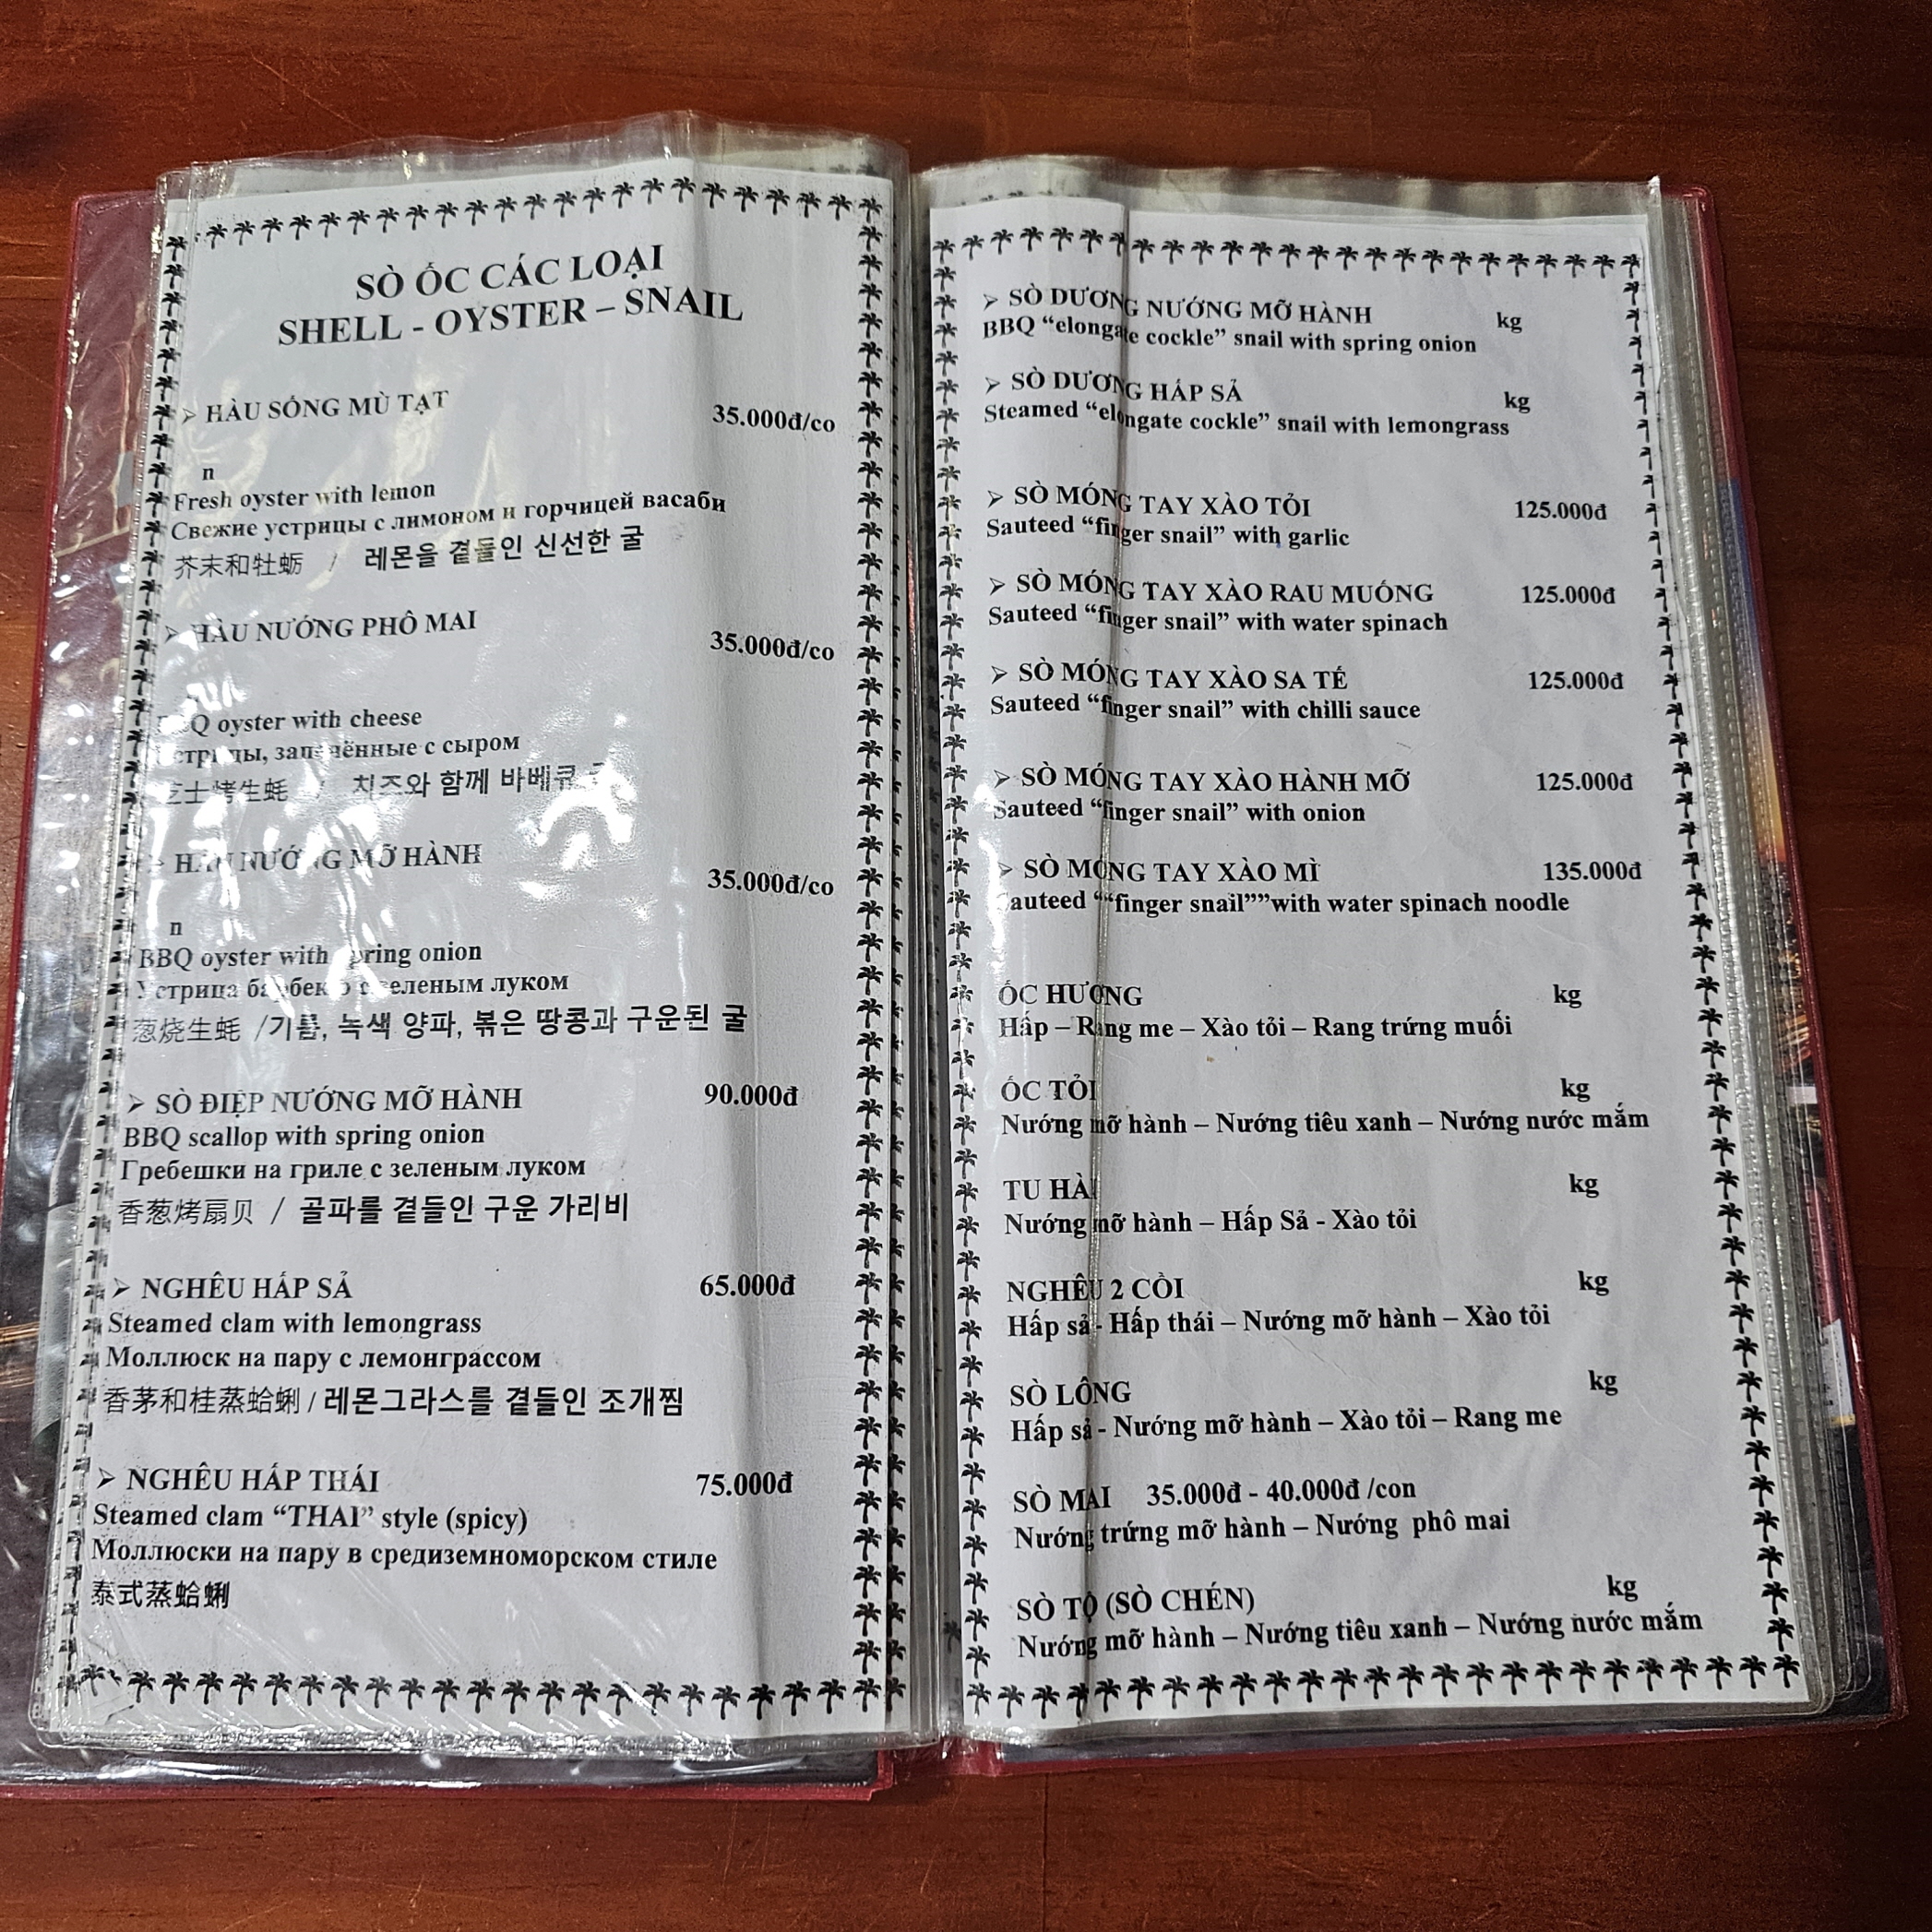 SÒ ỐC CÁC LOẠI
SHELL - OYSTER – SNAIL
➢ HÀU SỐNG MÙ TẠT 35.000đ/co
n
Fresh oyster with lemon
Свежие устрицы с лимоном и горчицей васаби
芥末和牡蛎 / 레몬을 곁들인 신선한 굴
➢ HÀU NƯỚNG PHÔ MAI 35.000đ/co
BBQ oyster with cheese
Устрицы, запечённые с сыром
芝士烤生蚝 / 치즈와 함께 바베큐
➢ HÀU NƯỚNG MỠ HÀNH 35.000đ/co
n
BBQ oyster with spring onion
Устрица барбекю с зеленым луком
葱烧生蚝 /기름, 녹색 양파, 볶은 땅콩과 구운된 굴
➢ SÒ ĐIỆP NƯỚNG MỠ HÀNH 90.000đ
BBQ scallop with spring onion
Гребешки на гриле с зеленым луком
香葱烤扇贝 / 골파를 곁들인 구운 가리비
➢ NGHÊU HẤP SẢ 65.000đ
Steamed clam with lemongrass
Моллюск на пару с лемонграссом
香茅和桂蒸蛤蜊 / 레몬그라스를 곁들인 조개찜
➢ NGHÊU HẤP THÁI 75.000đ
Steamed clam “THAI” style (spicy)
Моллюски на пару в средиземноморском стиле
泰式蒸蛤蜊
➢ SÒ DƯƠNG NƯỚNG MỠ HÀNH kg
BBQ “elongate cockle” snail with spring onion
➢ SÒ DƯƠNG HẤP SẢ kg
Steamed “elongate cockle” snail with lemongrass
➢ SÒ MÓNG TAY XÀO TỎI 125.000đ
Sauteed “finger snail” with garlic
➢ SÒ MÓNG TAY XÀO RAU MUỐNG 125.000đ
Sauteed “finger snail” with water spinach
➢ SÒ MÓNG TAY XÀO SA TẾ 125.000đ
Sauteed “finger snail” with chilli sauce
➢ SÒ MÓNG TAY XÀO HÀNH MỠ 125.000đ
Sauteed “finger snail” with onion
➢ SÒ MÓNG TAY XÀO MÌ 135.000đ
Sauteed ““finger snail””with water spinach noodle
ỐC HƯƠNG kg
Hấp – Rang me – Xào tỏi – Rang trứng muối
ỐC TỎI kg
Nướng mỡ hành – Nướng tiêu xanh – Nướng nước mắm
TU HÀI kg
Nướng mỡ hành – Hấp Sả - Xào tỏi
NGHÊU 2 CỒI kg
Hấp sả - Hấp thái – Nướng mỡ hành – Xào tỏi
SÒ LÔNG kg
Hấp sả - Nướng mỡ hành – Xào tỏi – Rang me
SÒ MAI 35.000đ - 40.000đ /con
Nướng trứng mỡ hành – Nướng phô mai
SÒ TỘ (SÒ CHÉN) kg
Nướng mỡ hành – Nướng tiêu xanh – Nướng nước mắm